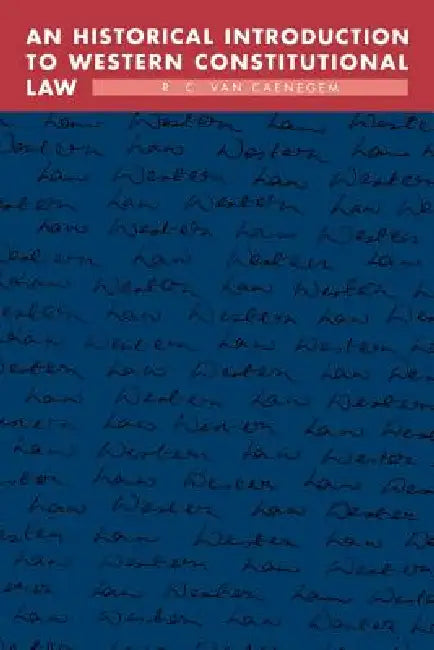 AN HISTORICAL INTRODUCTION
TO WESTERN CONSTITUTIONAL
LAW R. C. VAN CAENEGEM
Law Western Law Western
Western Law Western Law
Law Western Law Western
Western Law Western Law
Law Western Law Western
Western Law Western Law
Law Western Law Western
Western Law Western Law
Law Western Law Western
Western Law Western Law
Law Western Law Western
Western Law Western Law
Law Western Law Western
Western Law Western Law
Law Western Law Western
Western Law Western Law
Law Western Law Western
Western Law Western Law
Law Western Law Western